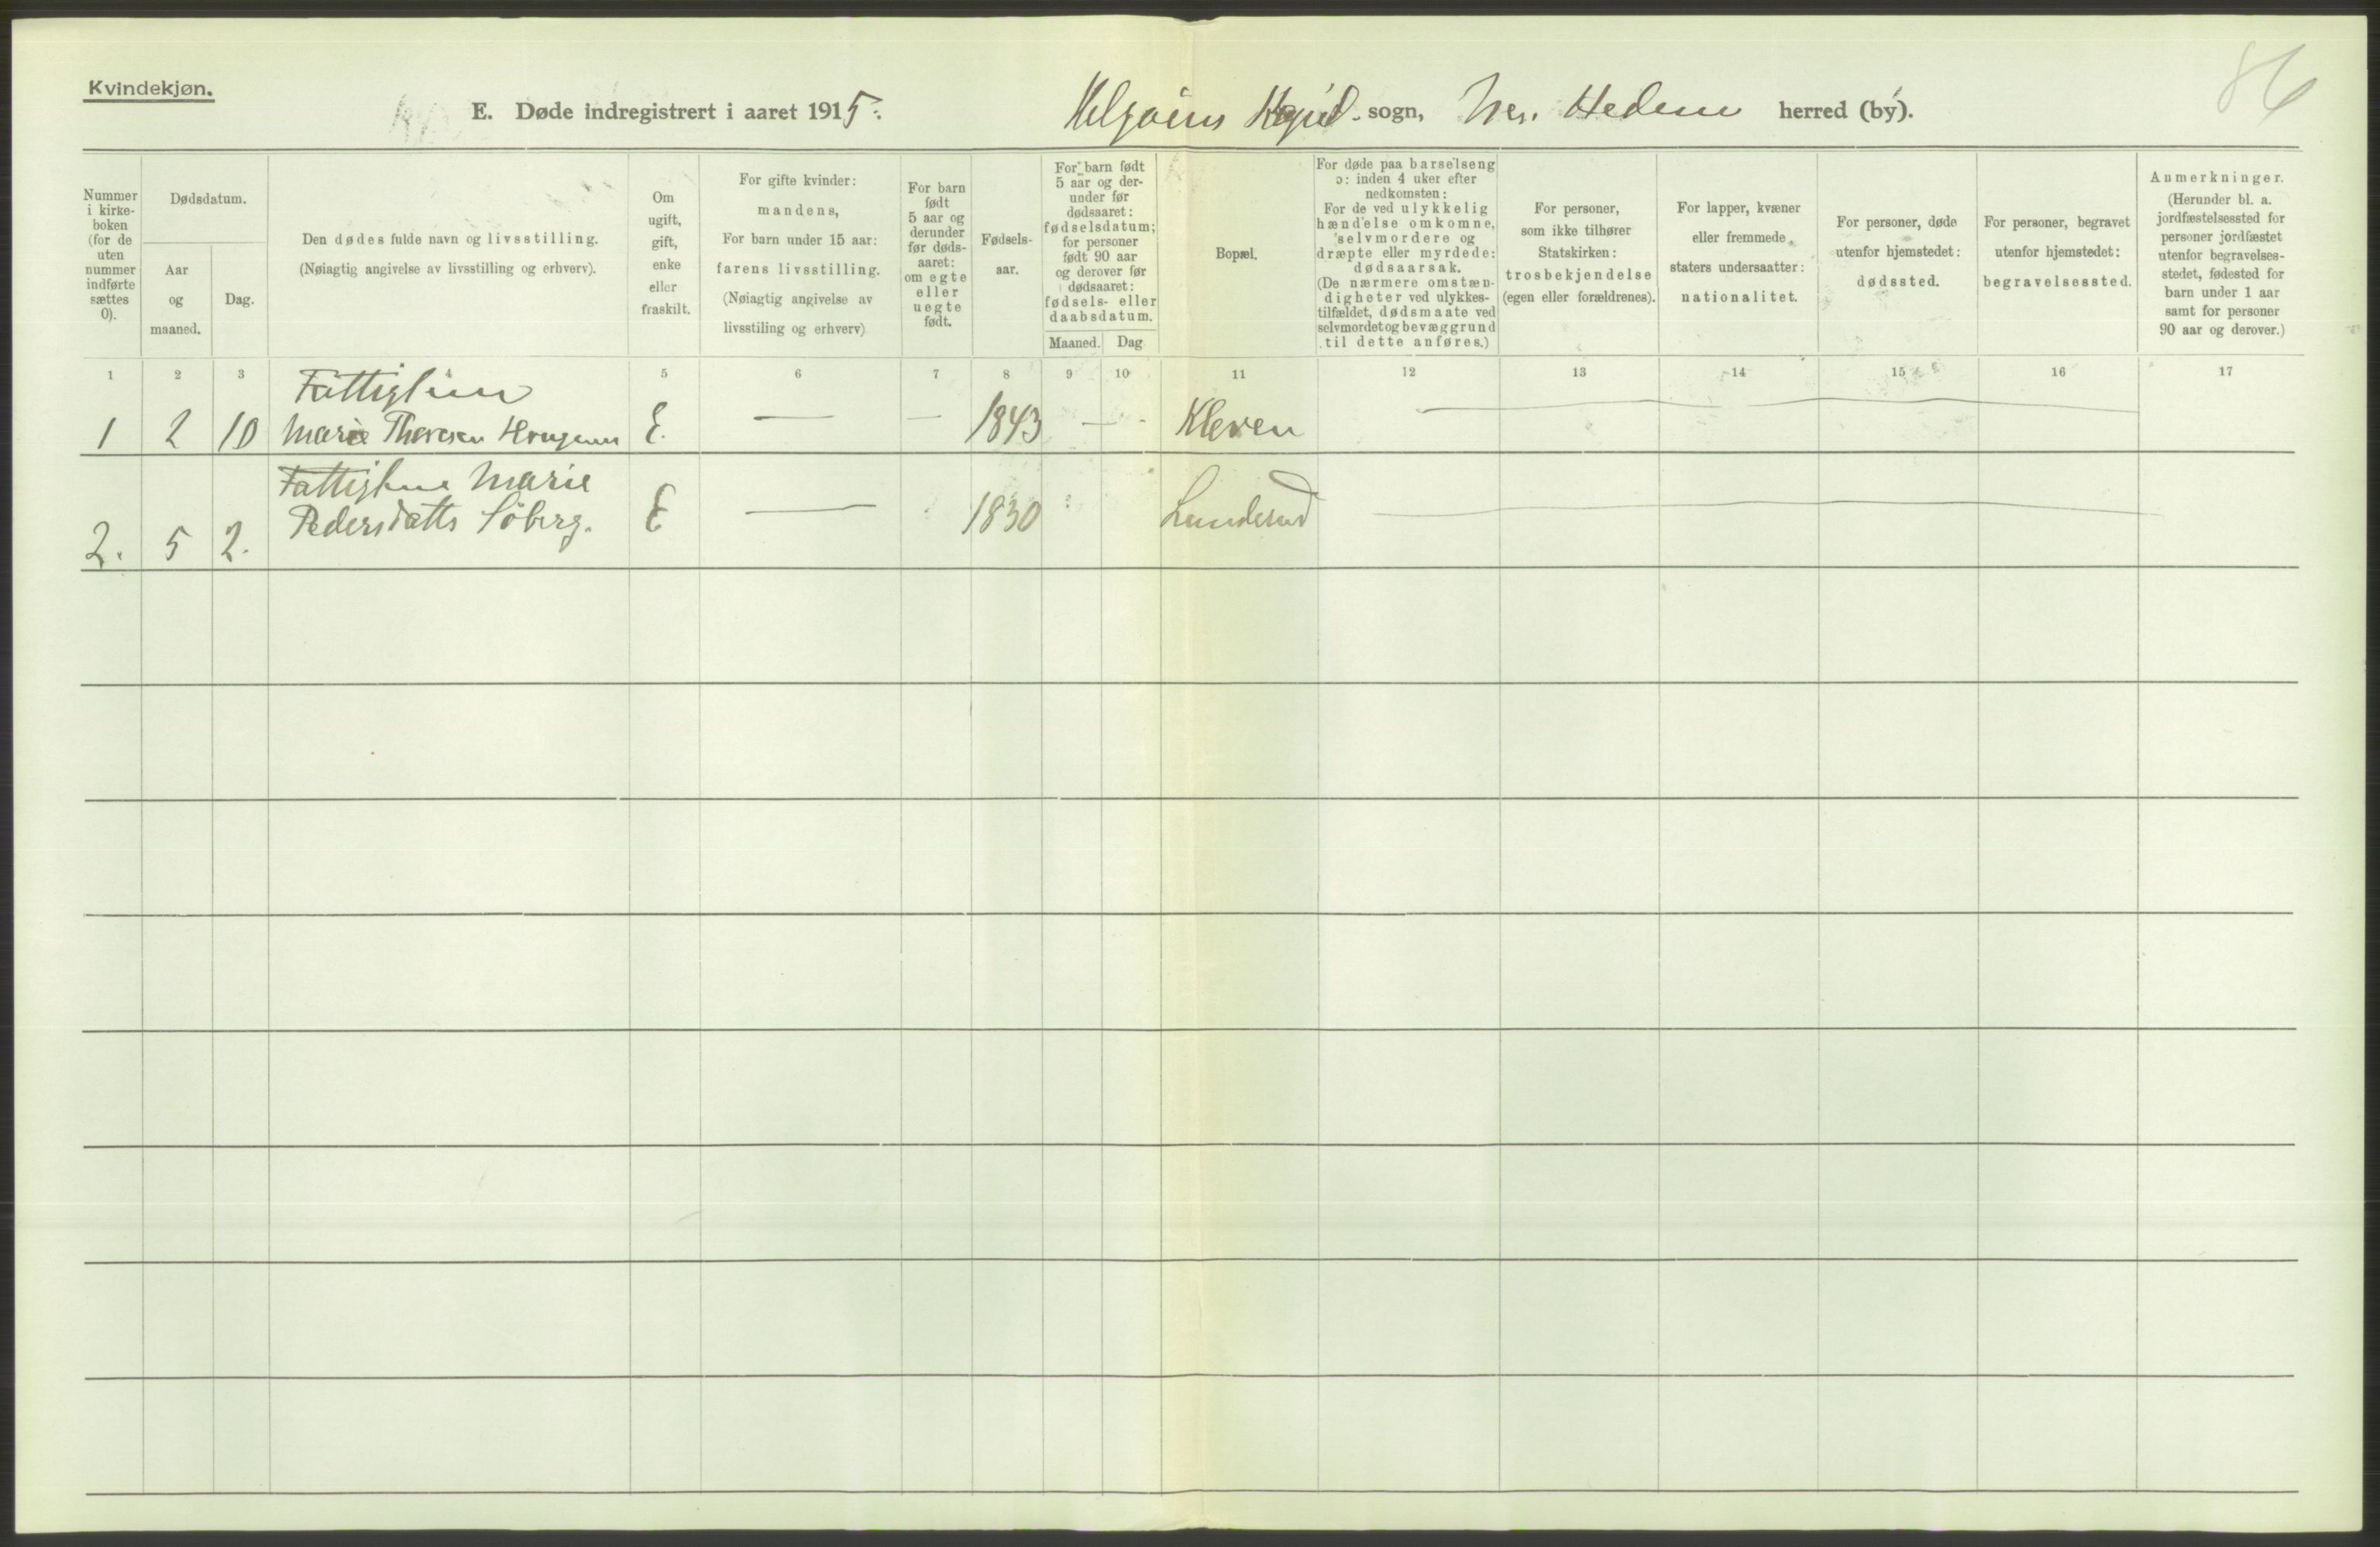 Kvindekjøn.
86
E. Døde indregistrert i aaret 1915. Helgøens Kapel. sogn, Nes. Hedem herred (by).
Nummer i kirke-boken (for de uten nummer indførte sættes 0).
Dødsdatum.
Aar og maaned.
Dag.
Den dødes fulde navn og livsstilling.
(Nøiagtig angivelse av livsstilling og erhverv).
Om ugift, gift, enke eller fraskilt.
For gifte kvinder:
mandens,
For barn under 15 aar:
farens livsstilling.
(Nøiagtig angivelse av
livsstiling og erhverv)
For barn født 5 aar og derunder før døds-aaret: om egte eller uegte født.
Fødsels-aar.
For barn født 5 aar og der-under før dødsaaret: fødselsdatum; for personer født 90 aar og derover før dødsaaret: fødsels- eller daabsdatum.
Maaned.
Dag
Bopæl.
For døde paa barselseng
ɔ: inden 4 uker efter
nedkomsten:
For de ved ulykkelig
hændelse omkomne,
selvmordere og
dræpte eller myrdede:
dødsaarsak.
(De nærmere omstæn-
digheter ved ulykkes-
tilfældet, dødsmaate ved
selvmordet og bevæggrund
til dette anføres.)
For personer,
som ikke tilhører
Statskirken:
trosbekjendelse
(egen eller forældrenes).
For lapper, kvæner
eller fremmede
staters undersaatter:
nationalitet.
For personer, døde
utenfor hjemstedet:
dødssted.
For personer, begravet
utenfor hjemstedet:
begravelsessted.
Anmerkninger.
(Herunder bl. a.
jordfæstelsessted for
personer jordfæstet
utenfor begravelses-
stedet, fødested for
barn under 1 aar
samt for personer
90 aar og derover.)
1 2 3 4 5 6 7 8 9 10 11 12 13 14 15 16 17
Fattiglem
1 2 10 Marie Thoresen E. — — 1843 — - Kleven —
Fattiglem Marie
2. 5 2. Pedersdatts Søberg. E — 1830 Lunderud —